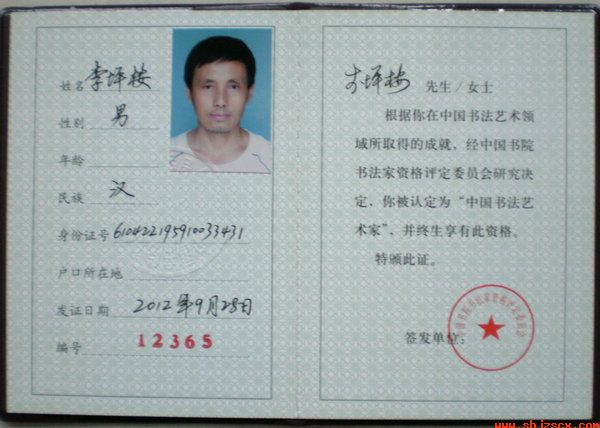 姓名 李坪
性别 男
年龄
民族 汉
身份证号 610422195910033431
户口所在地
发证日期 2012年9月28日
编号 12365
李坪 先生／女士
根据你在中国书法艺术领
域所取得的成就，经中国书院
书法家资格评定委员会研究决
定，你被认定为“中国书法艺
术家”，并终生享有此资格。
特颁此证。
签发单位：
中国书院书法家资格评定委员会
www.shjzscx.com